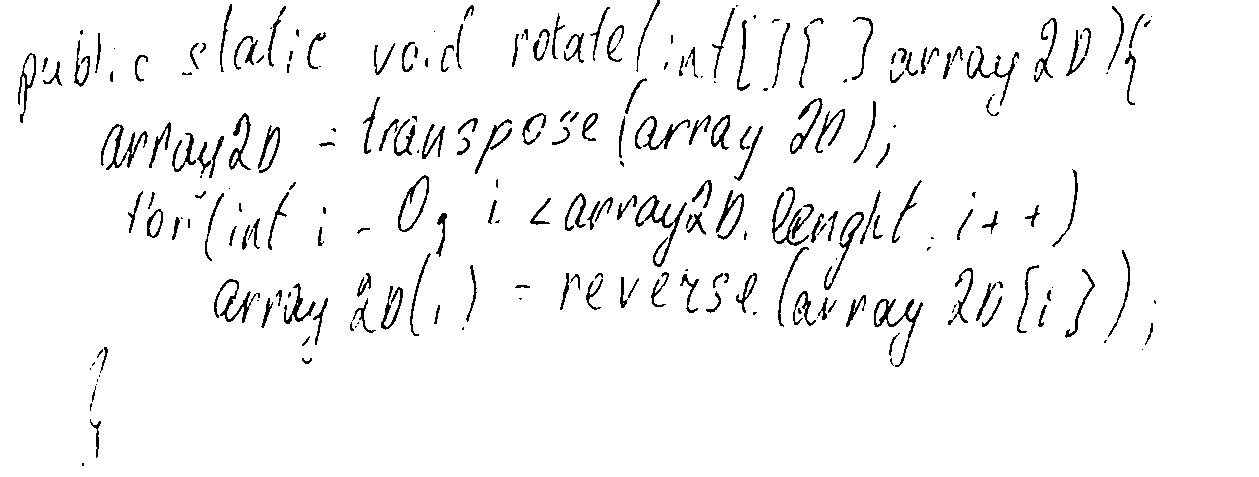 public static void rotate(int[][] array2D){
array2D = transpose(array 2D);
for(int i = 0; i < array2D.lenght; i++)
array 2D(i) = reverse(array 2D[i]);
}